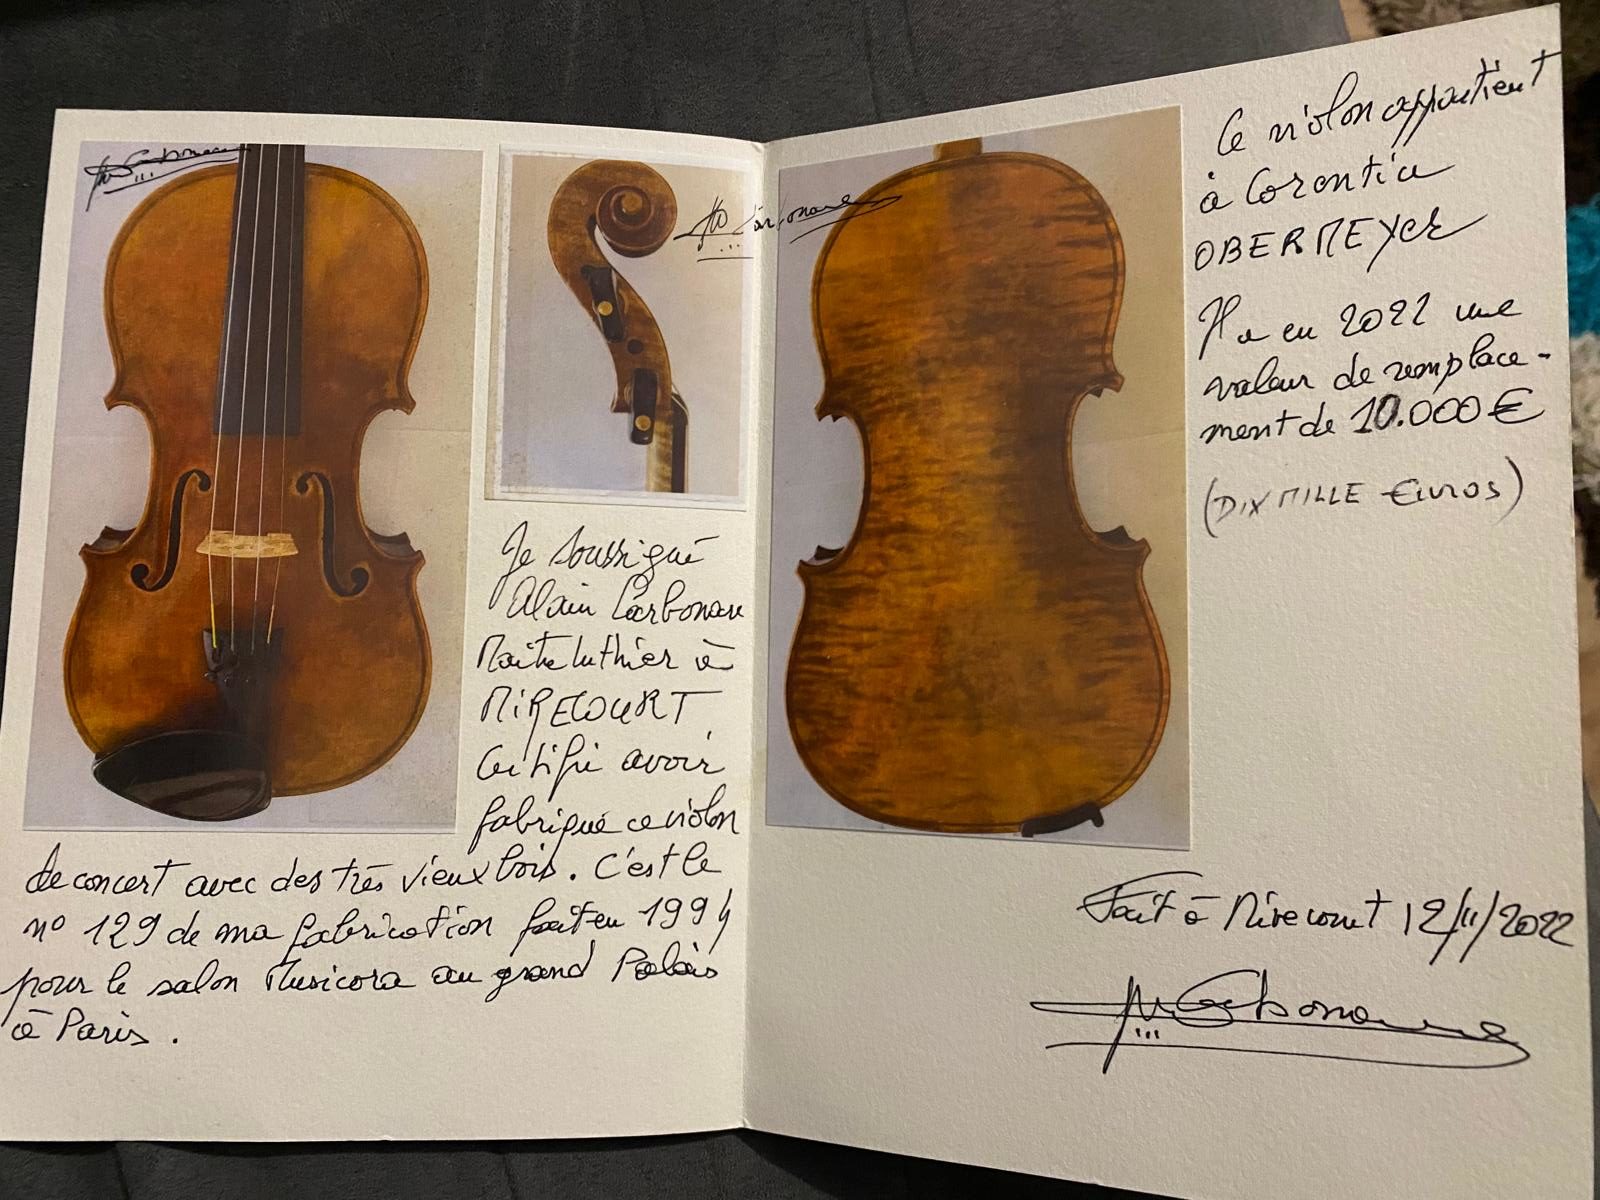 Je soussigné
Alain Carbonare
Maître luthier à
MIRECOURT
Certifie avoir
fabriqué ce violon
de concert avec des très vieux bois. C'est le
n° 129 de ma fabrication fait en 1994
pour le salon Musicora au grand Palais
à Paris.
Ce violon appartient
à Corentin
OBERMEYER
Il a en 2022 une
valeur de remplace-
ment de 10.000 €
(DIX MILLE Euros)
Fait à Mirecourt 12/11/2022
Carbonare